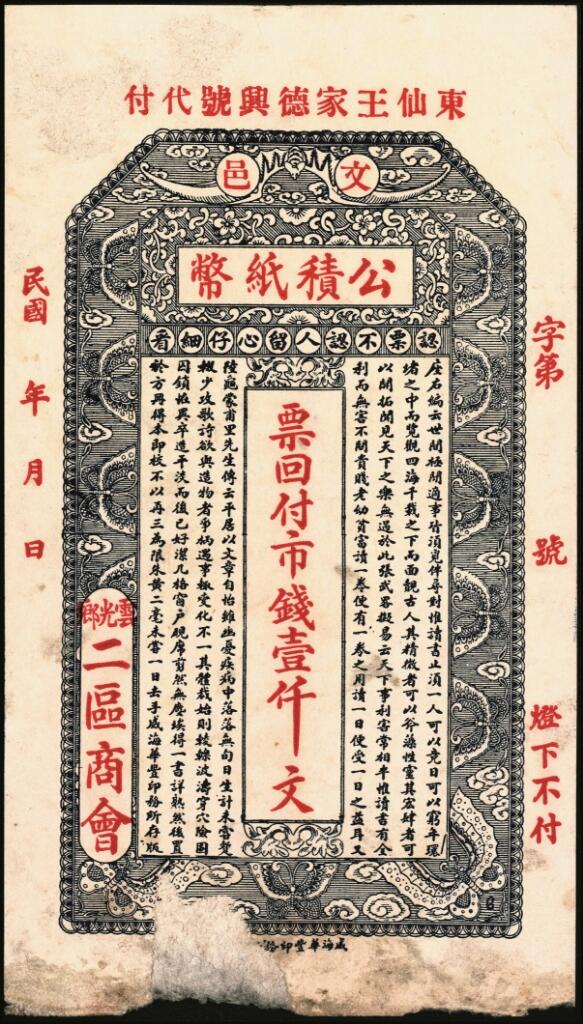 東仙王家德興號代付
文邑
公積紙幣
認票不認人留心仔細看
座右編云世間極閒適事皆須覓伴尋對惟讀書止須一人可以竟日可以窮年環
堵之中而覽觀四海千載之下而面覿古人其精微者可以爷藻性靈其宏肆者可
以開拓聞見天下之樂無過於此張武客擬易云天下事利害常相半惟讀書有全
利而無害不問貴賤老幼貧富讀一卷便有一卷之用讀一日便受一日之益耳又
票回付市錢壹仟文
陸龜蒙甫里先生傳云平居以文章自怡雖幽憂疾病中落落無旬日生計未嘗暫
輟少攻歌詩欲與造物者爭柄遇事輒變化不一其體裁始則凌轢波濤穿穴險固
囚鎖怪異卒造平淡而後已好潔几格窗戶硯席剪然無塵埃得一書詳熟然後置
於方冊得本即校不以再三為限朱黃二毫未嘗一日去手威海華豐印務所存版
字第
號
燈下不付
民國
年
月
日
雲光郎
二區商會
威海華豐印務